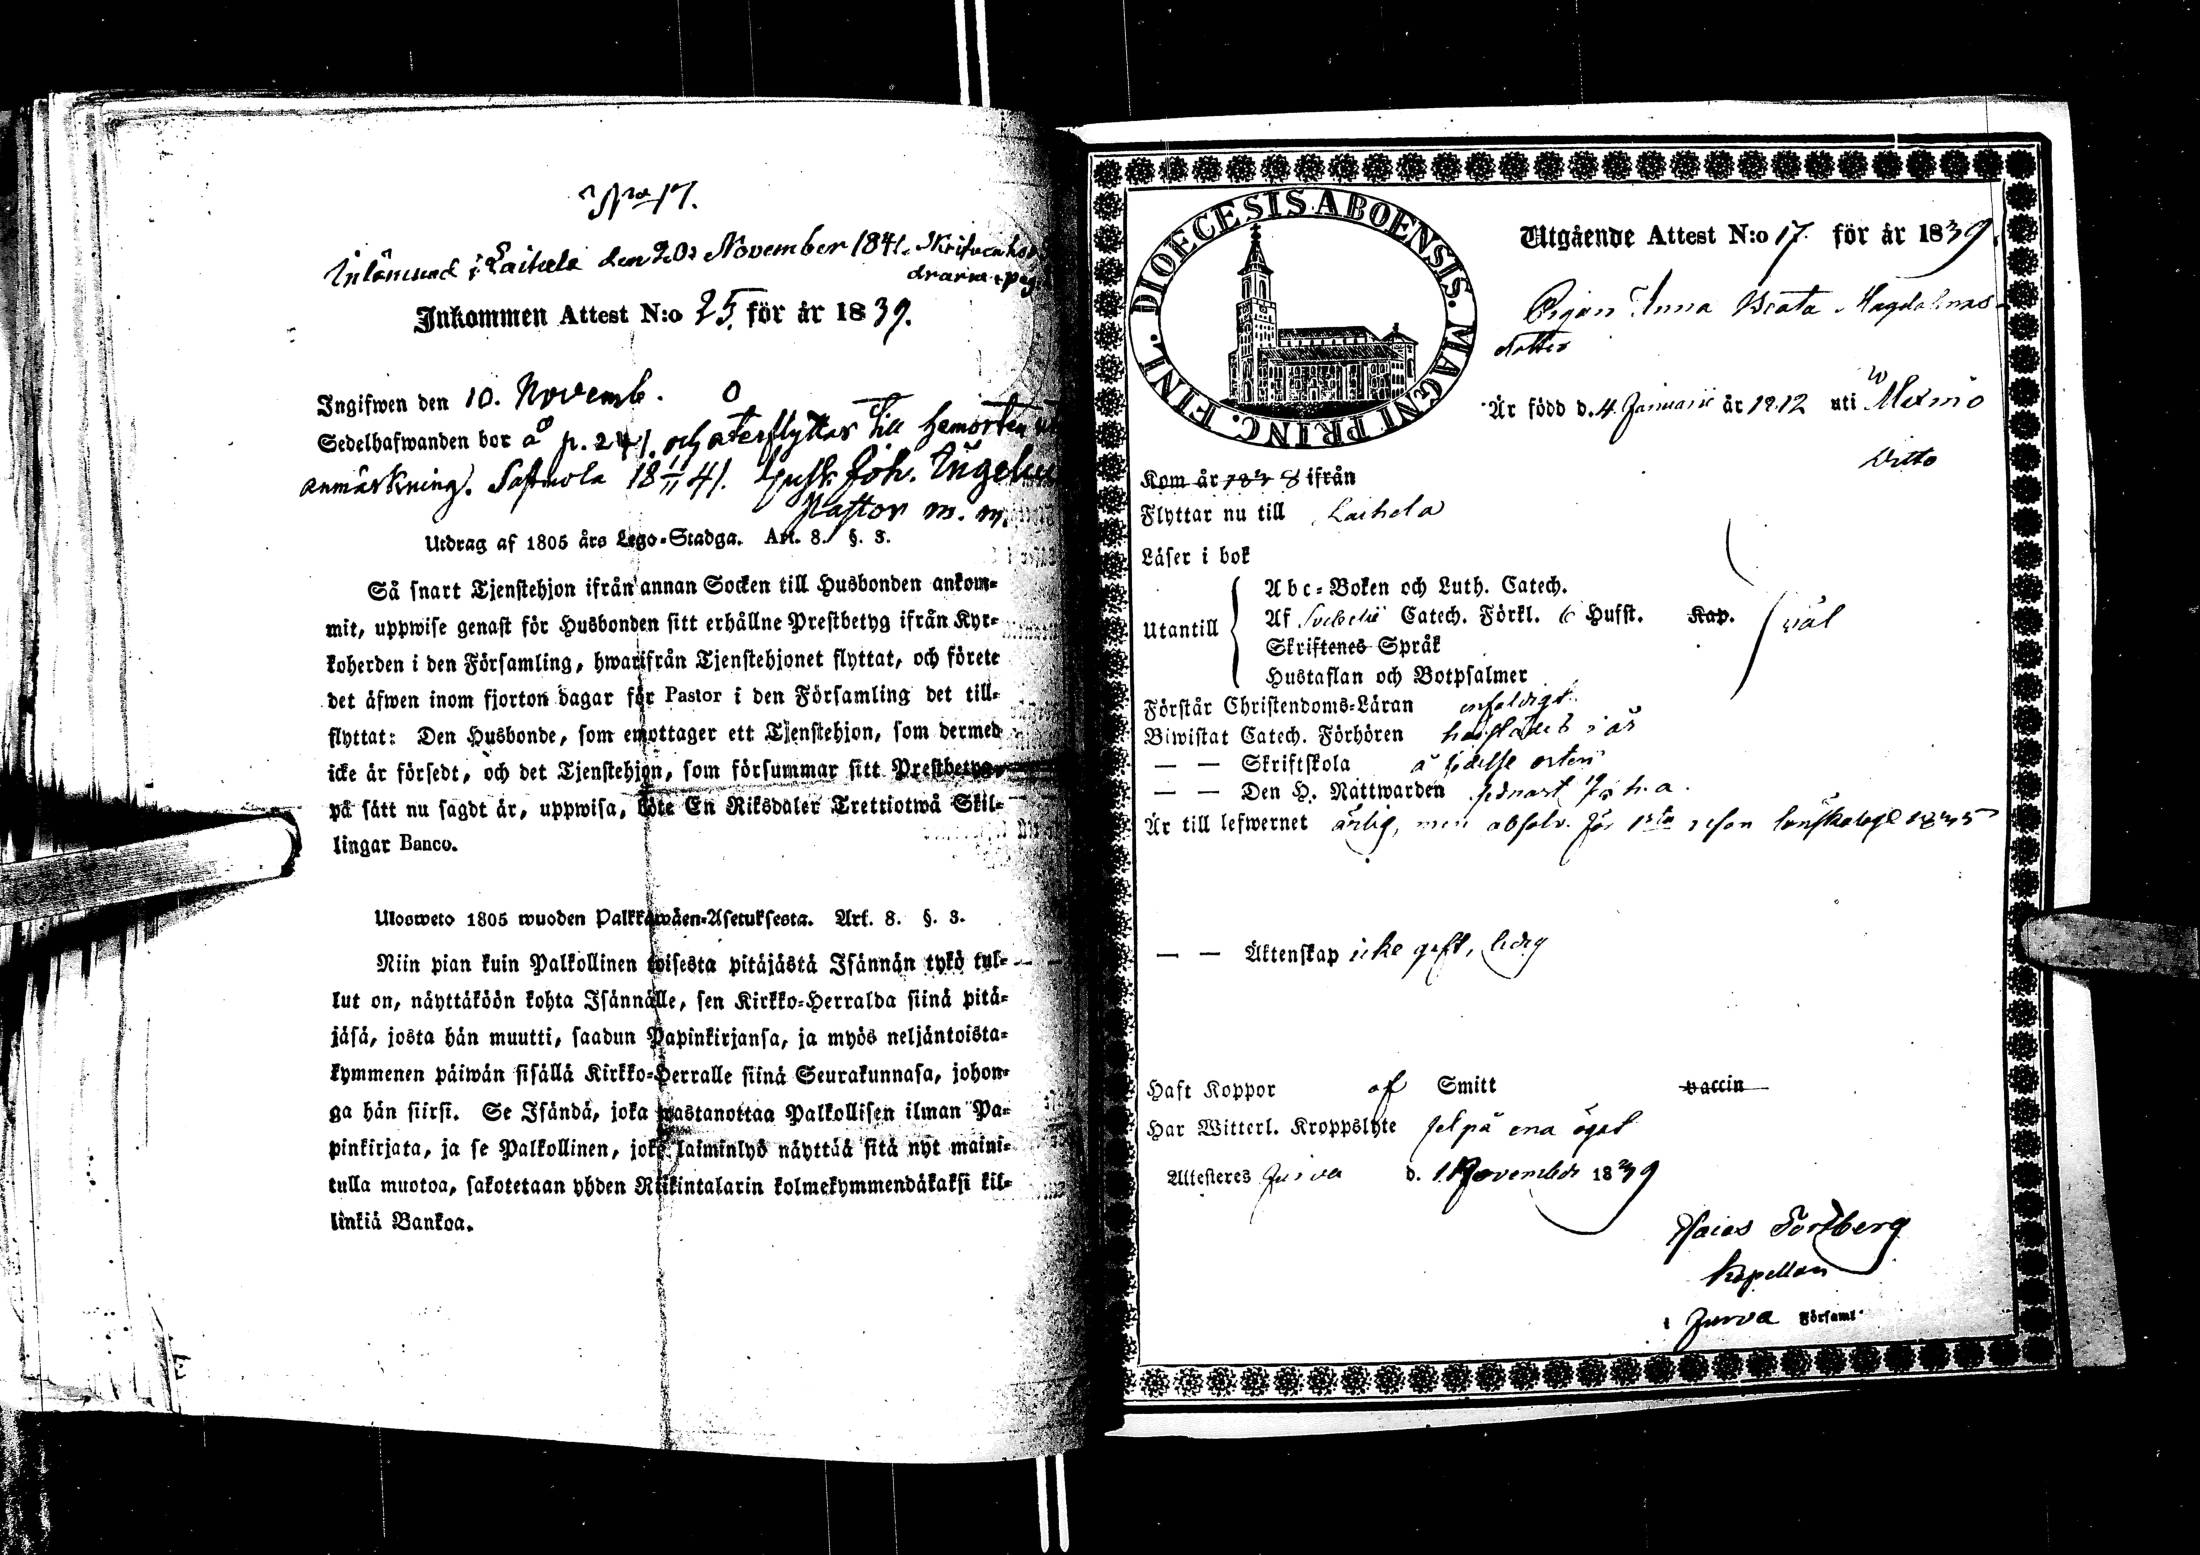 No 17.
Inlämnad i Laihela den 20 November 1841.
Inkommen Attest N:o 25. för år 1839.
Ingifwen den 10. Novemb.
Sedelhafwanden bor å p. 241. och återflyttar till hemorten
anmärkning. 18 11 41. Joh.
Pastor m. m.
Utdrag af 1805 års Lego-Stadga. Art. 8. §. 3.
Så snart Tjenstehjon ifrån annan Socken till Husbonden ankom-
mit, uppwise genast för Husbonden sitt erhållne Prestbetyg ifrån Kyr-
koherden i den Församling, hwarifrån Tjenstehjonet flyttat, och förete
det äfwen inom fjorton dagar för Pastor i den Församling det till-
flyttat: Den Husbonde, som emottager ett Tjenstehjon, som dermed
icke är försedt, och det Tjenstehjon, som försummar sitt Prestbetyg,
på sätt nu sagdt är, uppwisa, böte En Riksdaler Trettiotwå Skil-
lingar Banco.
Ulosweto 1805 wuoden Palkkawäen-Asetuksesta. Art. 8. §. 3.
Niin pian kuin Palkollinen toisesta pitäjästä Isännän tykö tul-
lut on, näyttäköön kohta Isännälle, sen Kirkko-Herralda siinä pitä-
jäsä, josta hän muutti, saadun Papinkirjansa, ja myös neljäntoista-
kymmenen päiwän sisällä Kirkko-Herralle siinä Seurakunnasa, johon-
ga hän siirsi. Se Isändä, joka wastanottaa Palkollisen ilman Pa-
pinkirjata, ja se Palkollinen, joka laiminlyö näyttää sitä nyt maini-
tulla muotoa, sakotetaan yhden Riikintalarin kolmekymmendäkaksi kil-
linkiä Bankoa.
DIOECESIS ABOENSIS. MAGNI PRINC. FINL.
Utgående Attest N:o 17. för år 1839.
Pigan Anna Beata Magdalenas
dotter
Är född d. 4 Januarii år 1812 uti
Ditto
Kom år 1838 ifrån
Flyttar nu till Laihela
Läser i bok
Utantill
Abc-Boken och Luth. Catech.
Af Svebelii Catech. Förkl. 6 Hufst. Kap.
Skriftenes Språk
Hustaflan och Botpsalmer
väl
Förstår Christendoms-Läran enfaldigt
Biwistat Catech. Förhören i år
— — Skriftskola å födelse orten
— — Den H. Nattwarden sednast h. a.
Är till lefwernet ärlig, men absolv. för 1sta resan lönskaläge 1835
— — Äktenskap icke gift, ledig
Haft Koppor af Smitt vaccin
Har Witterl. Kroppslyte fel på ena ögat
Attesteres Jurva d. 1 November 1839
Esaias Fortberg
Kapellan
i Jurva Församl.